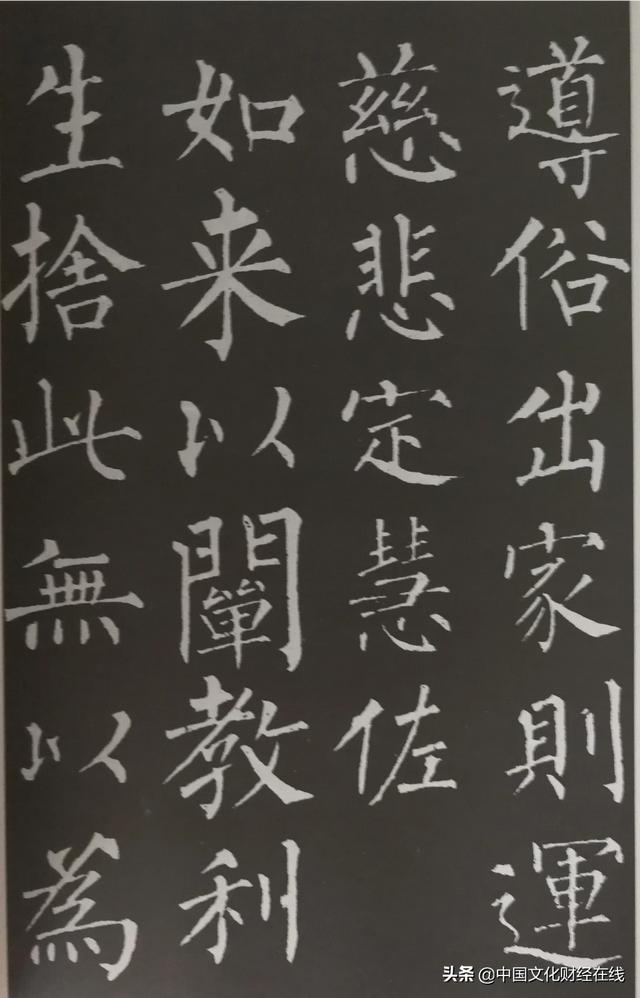 導俗出家則運
慈悲定慧佐
如来以闡教利
生捨此無以為
头条 @中国文化财经在线